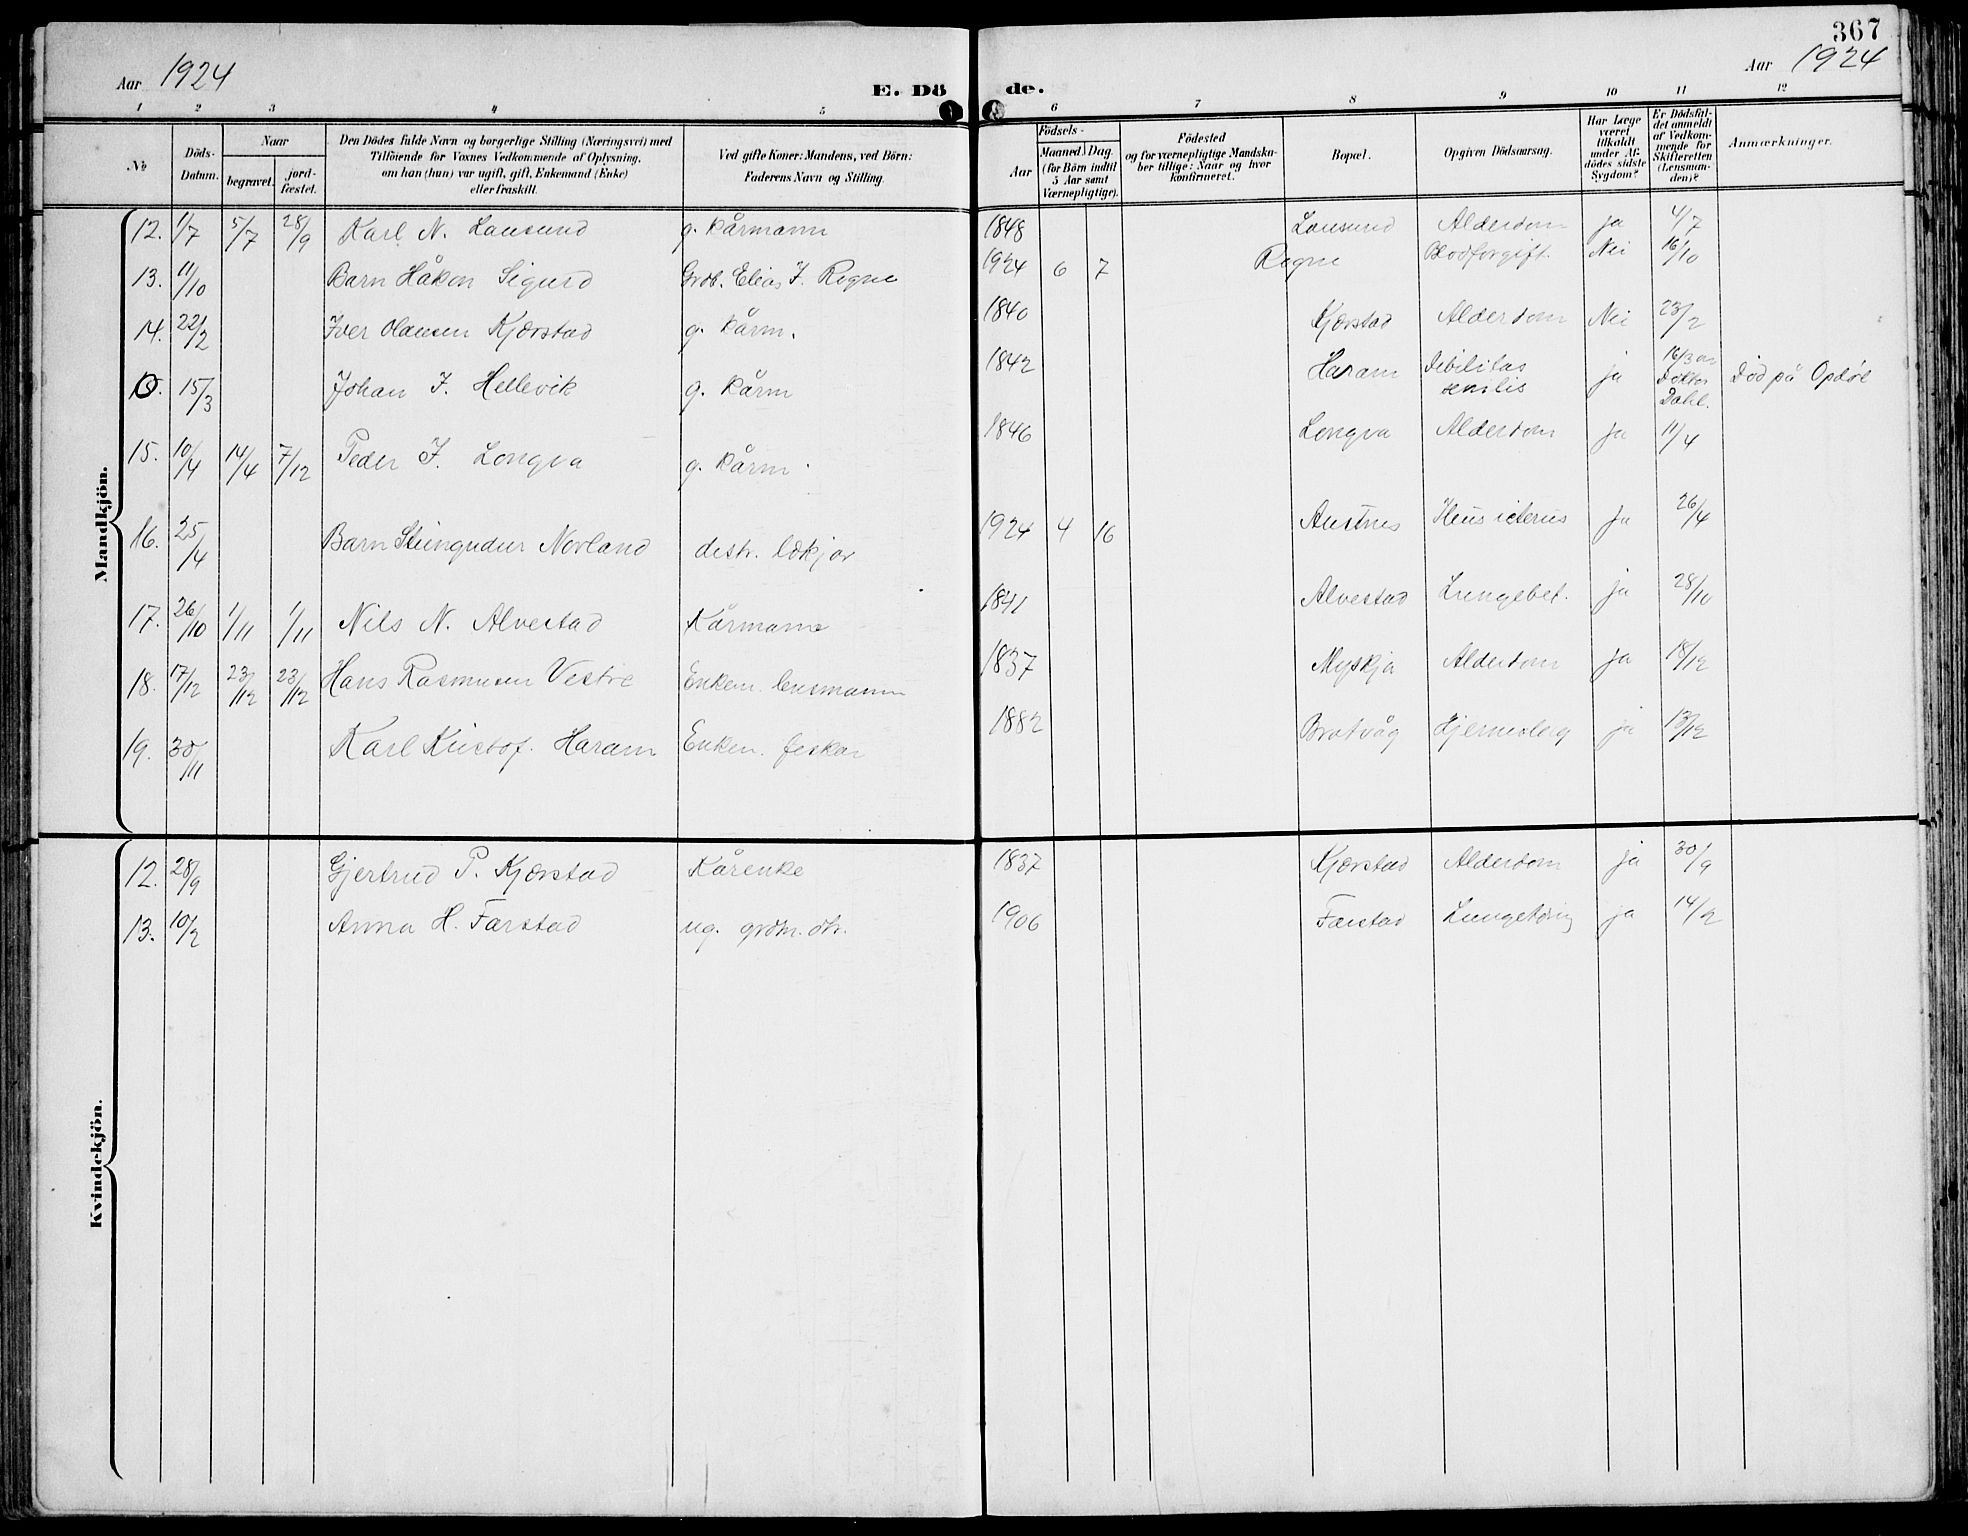 367
Aar 1924
E. Döde.
Aar 1924
1 2 3 4 5 6 7 8 9 10 11 12
No
Döds-Datum.
Naar
begravet.
jord-fæstet.
Den Dödes fulde Navn og borgerlige Stilling (Næringsvei) med
Tilföiende for Voxnes Vedkommende af Oplysning,
om han (hun) var ugift, gift, Enkemand (Enke)
eller fraskilt.
Ved gifte Koner: Mandens, ved Börn:
Faderens Navn og Stilling.
Födsels-
Aar
Maaned. Dag.
(for Börn indtil
5 Aar samt
Værnepligtige).
Födested
og for værnepligtige Mandska-
ber tillige: Naar og hvor
konfirmeret.
Bopæl.
Opgiven Dödsaarsag.
Har Læge
været
tilkaldt
under Af-
dödes sidste
Sygdom?
Er Dödsfal-
det anmeldt
af Vedkom-
mende for
Skifteretten
(Lensman-
den)?
Anmerkninger.
Mandkjön.
12. 1/7 5/7 28/9 Karl N. Lausund g. kårmann 1848 Lausund Alderdom ja 4/7
13. 11/10 Barn Håkon Sigurd Grdb. Elias I. Rogne 1924 6 7 Rogne Blodforgift. Nei 16/10
14. 22/2 Iver Olausen Kjærstad g. kårm. 1840 Kjærstad Alderdom Nei 23/2
15/3 Johan I. Hellevik g. kårm 1842 Haram Debilitas senilis ja 16/3 Doktor Dahl. Död på Opdøl
15. 10/4 14/4 7/12 Peder I. Longva g. kårm. 1846 Longva Alderdom ja 11/4
16. 25/4 Barn Steingudur Norland distr. lækjar 1924 4 16 Austnes Ileus icterus ja 26/4
17. 26/10 1/11 1/11 Nils N. Alvestad Kårmann 1841 Alvestad Lungebet. ja 28/10
18. 17/12 23/12 23/12 Hans Rasmusen Vestre Enkem. lensmann 1837 Myskja Alderdom ja 18/12
19. 30/11 Karl Kristof. Haram Enkem. fiskar 1882 Bratvåg Hjerneslag ja 13/12
Kvindekjön.
12. 28/9 Gjertrud P. Kjærstad Kårenke 1837 Kjærstad Alderdom ja 30/9
13. 10/2 Anna H. Farstad ug. grdm. dtr. 1906 Farstad Lungetæring ja 14/2